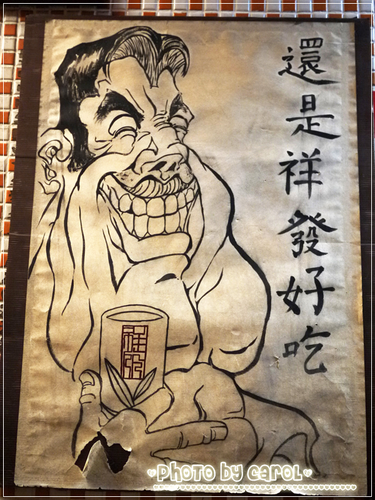 還是祥發好吃
祥發
PHOTO BY CAROL